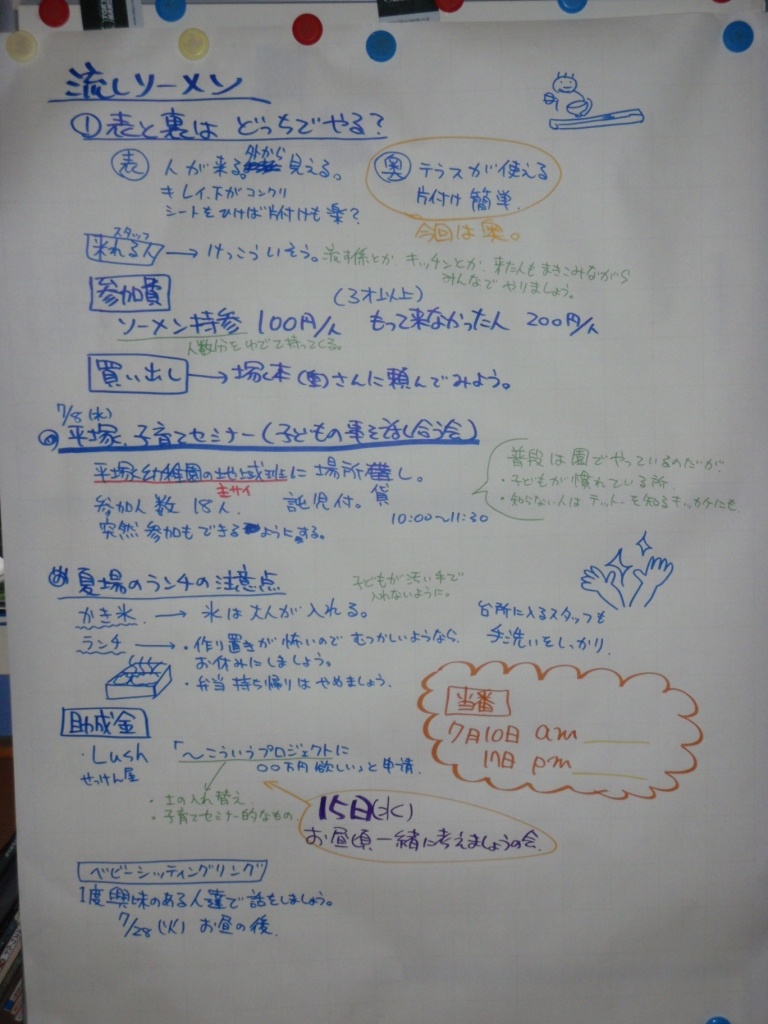 流しソーメン
①表と裏は どっちでやる?
表 人が来る。外から見える。
キレイ、下がコンクリ
シートをひけば片付けも楽?
奥 テラスが使える
片付け 簡単。
今回は奥。
スタッフ
来れる人 → けっこういそう。流す係とか、キッチンとか、来た人もまきこみながら
みんなでやりましょう。
参加費 (3才以上)
ソーメン持参 100円/人 もって来なかった人 200円/人
人数分をゆでて持ってくる。
買い出し → 塚本(宙)さんに頼んでみよう。
7/8(水)
平塚、子育てセミナー(子どもの事を話し合う会)
平塚幼稚園の地域班に場所貸し。
主サイ
参加人数 18人. 託児付。
10:00〜11:30
突然参加もできるようにする。
普段は園でやっているのだが、
・子どもが慣れている所
・知らない人は を知るキッカケにも
夏場のランチの注意点
かき氷 → 氷は大人が入れる。
子どもが汚い手で
入れないように。
ランチ → ・作り置きが怖いので むつかしいようなら、
お休みにしましょう。
・弁当持ち帰りはやめましょう。
台所に入るスタッフも
手洗いをしっかり.
助成金
・Lush 「〜こういうプロジェクトに
せっけん屋 〇〇万円欲しい」と申請.
・土の入れ替え
・子育てセミナー的なもの
15日(水)
お昼頃一緒に考えましょうの会.
当番
7月10日 am
17日 pm
ベビーシッティングリング
1度興味のある人達で話をしましょう。
7/28(火) お昼の後.